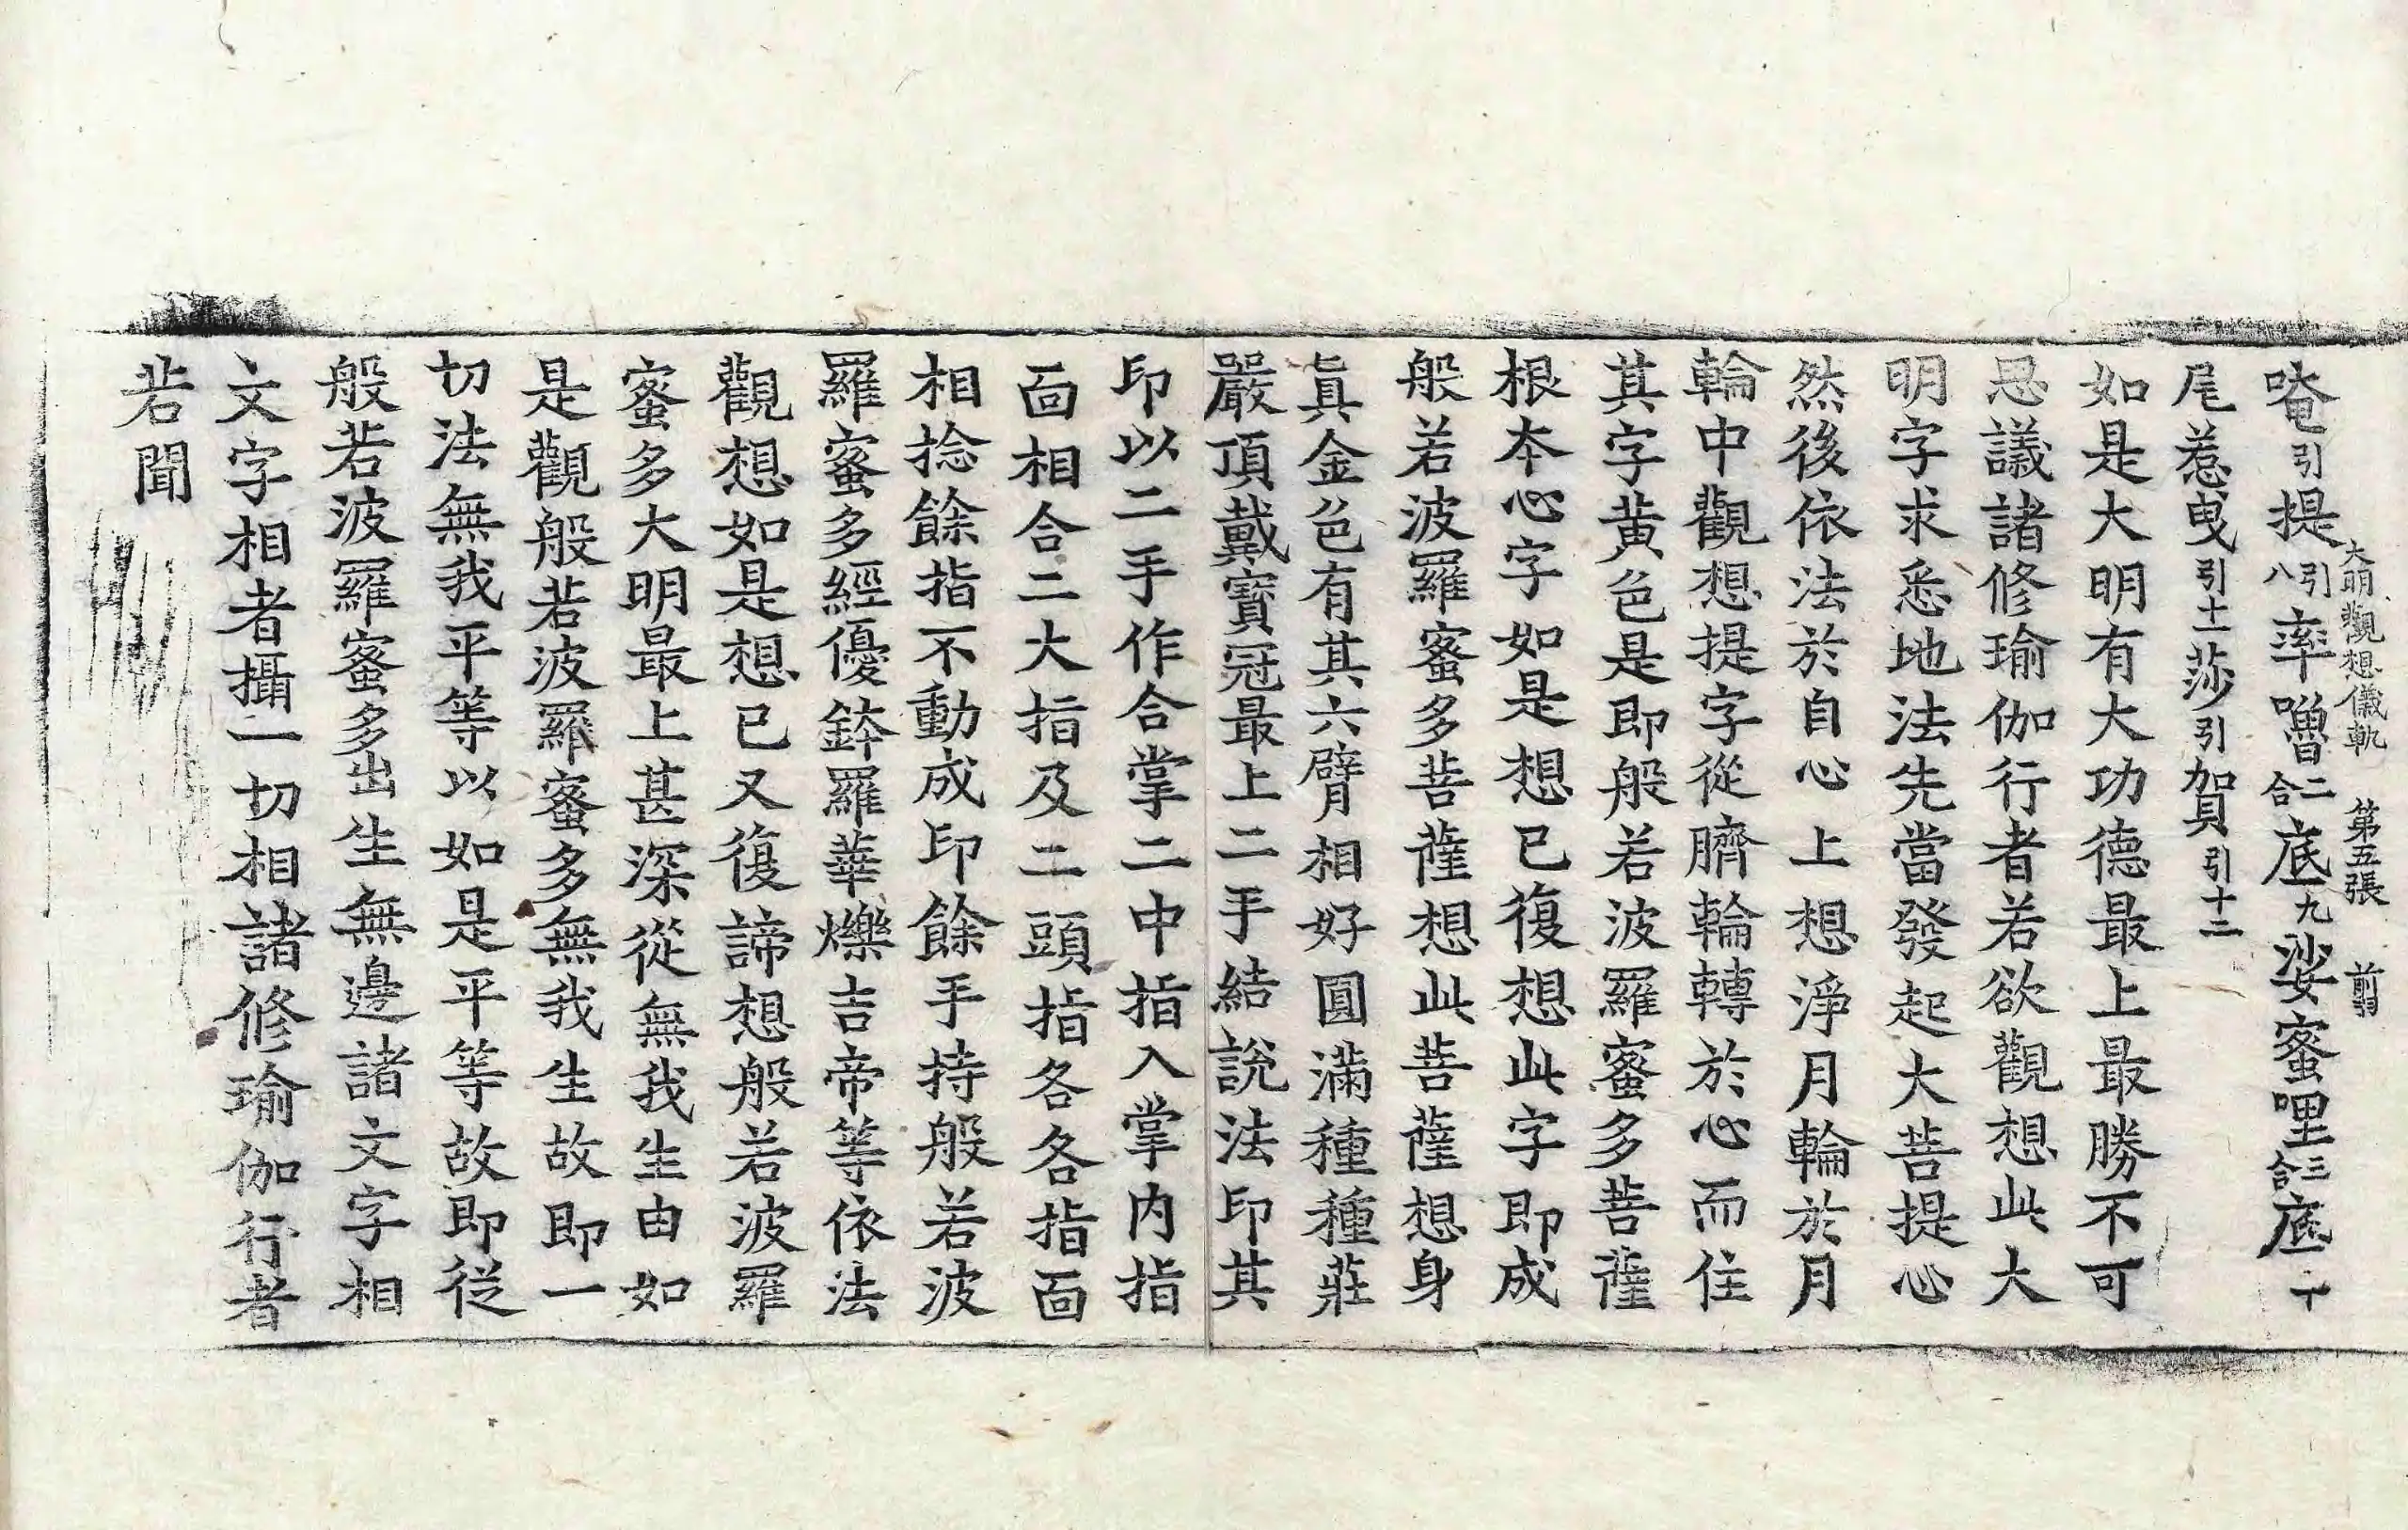 大明觀想儀軌 第五張 前
唵引提引八率嚕二合底九娑蜜哩三合底一丁
尾惹曳引十一莎引賀引十二
如是大明有大功德最上最勝不可
思議諸修瑜伽行者若欲觀想此大
明字求悉地法先當發起大菩提心
然後依法於自心上想淨月輪於月
輪中觀想提字從臍輪轉於心而住
其字黃色是即般若波羅蜜多菩薩
根本心字如是想已復想此字即成
般若波羅蜜多菩薩想此菩薩想身
眞金色有其六臂相好圓滿種種莊
嚴頂戴寶冠最上二手結說法印其
印以二手作合掌二中指入掌内指
面相合二大指及二頭指各各指面
相捻餘指不動成印餘手持般若波
羅蜜多經優鉢羅華爍吉帝等依法
觀想如是想已又復諦想般若波羅
蜜多大明最上甚深從無我生由如
是觀般若波羅蜜多無我生故即一
切法無我平等以如是平等故即從
般若波羅蜜多出生無邊諸文字相
文字相者攝一切相諸修瑜伽行者
若聞